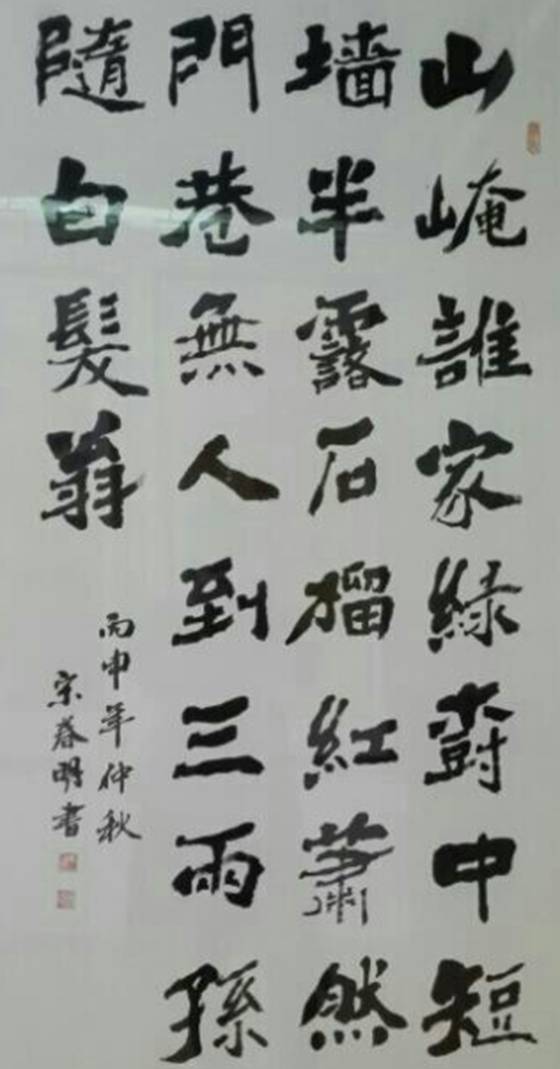 山崦誰家緑樹中短
墙半露石榴紅蕭然
門巷無人到三兩孫
隨白髮翁
丙申年仲秋
宋春明書